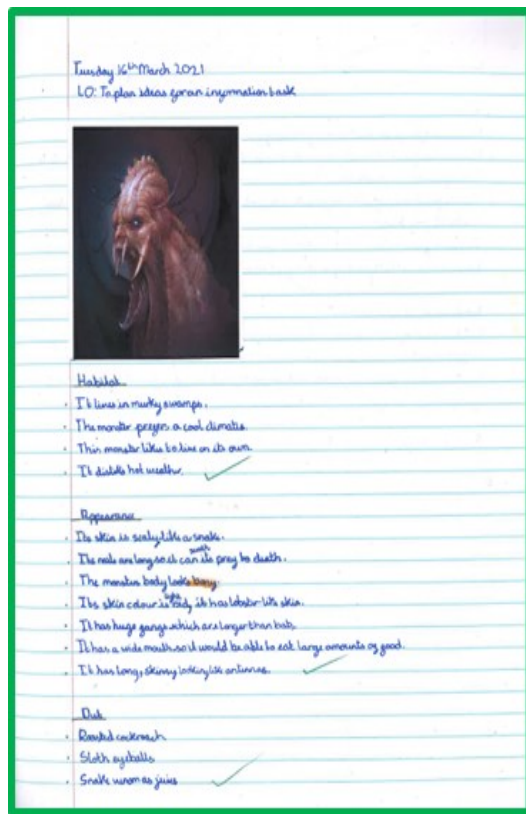 Tuesday 16th March 2021
LO: To plan ideas for an information task
Habitat
It lives in murky swamps.
The monster prefers a cool climate.
This monster likes to live on its own.
It dislikes hot weather.
Appearance
Its skin is scaly like a snake.
Its nails are long so it can scratch its prey to death.
The monsters body looks bony.
Its skin colour is light red, it has lobster like skin.
It has huge fangs which are longer than bats.
It has a wide mouth so it would be able to eat large amounts of food.
It has long, skinny looking like antennae.
Diet
Roasted cockroach
Sloth eyeballs
Snake venom as juice